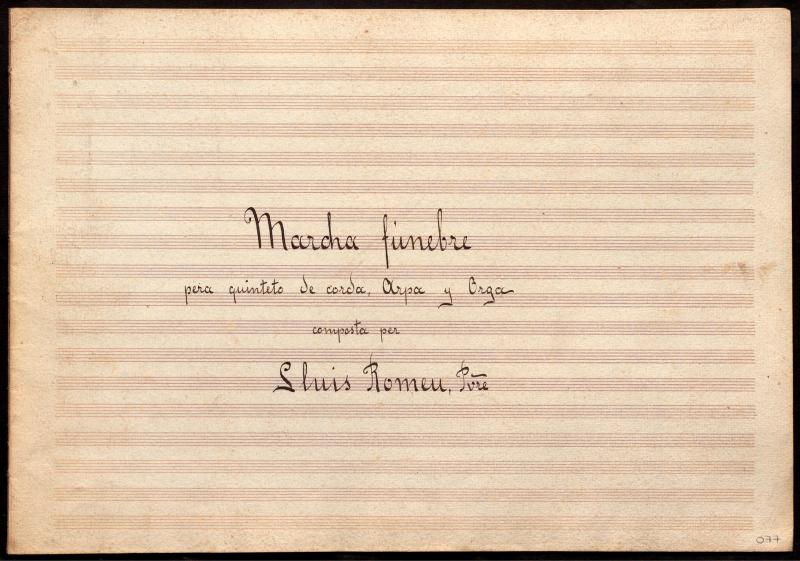 Marcha fúnebre
pera quinteto de corda, Arpa y Orga
composta per
Lluis Romeu, Pvre
077